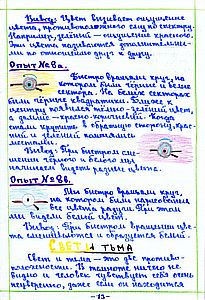 Вывод: Цвет вызывает ощущение
цвета, противоположного ему по спектру.
Например, зелёный – ощущение красного.
Эти цвета называются дополнительны-
ми по отношению друг к другу.
Опыт №8а.
Быстро вращали круг, на
котором были чёрные и белые
сектора. На белых секторах
были чёрные квадратики. Ближе к
центру появился сине-зелёный цвет,
а дальше – красно-коричневый. Когда
стали крутить в обратную сторону, крас-
ный и зелёный поменялись
местами.
Вывод: При быстром сме-
шении чёрного и белого мы
начинаем видеть разные цвета.
Опыт №8б.
Мы быстро вращали круг,
на котором были нарисованы
все цвета радуги. При этом
мы видели белый цвет.
Вывод: При быстром вращении цве-
та смешиваются и образуется белый.
СВЕТ И ТЬМА
Свет и тьма – это две противо-
положности. В темноте ничего не
видно и человек чувствует себя очень
неуверенно, даже если он находится
- 13 -